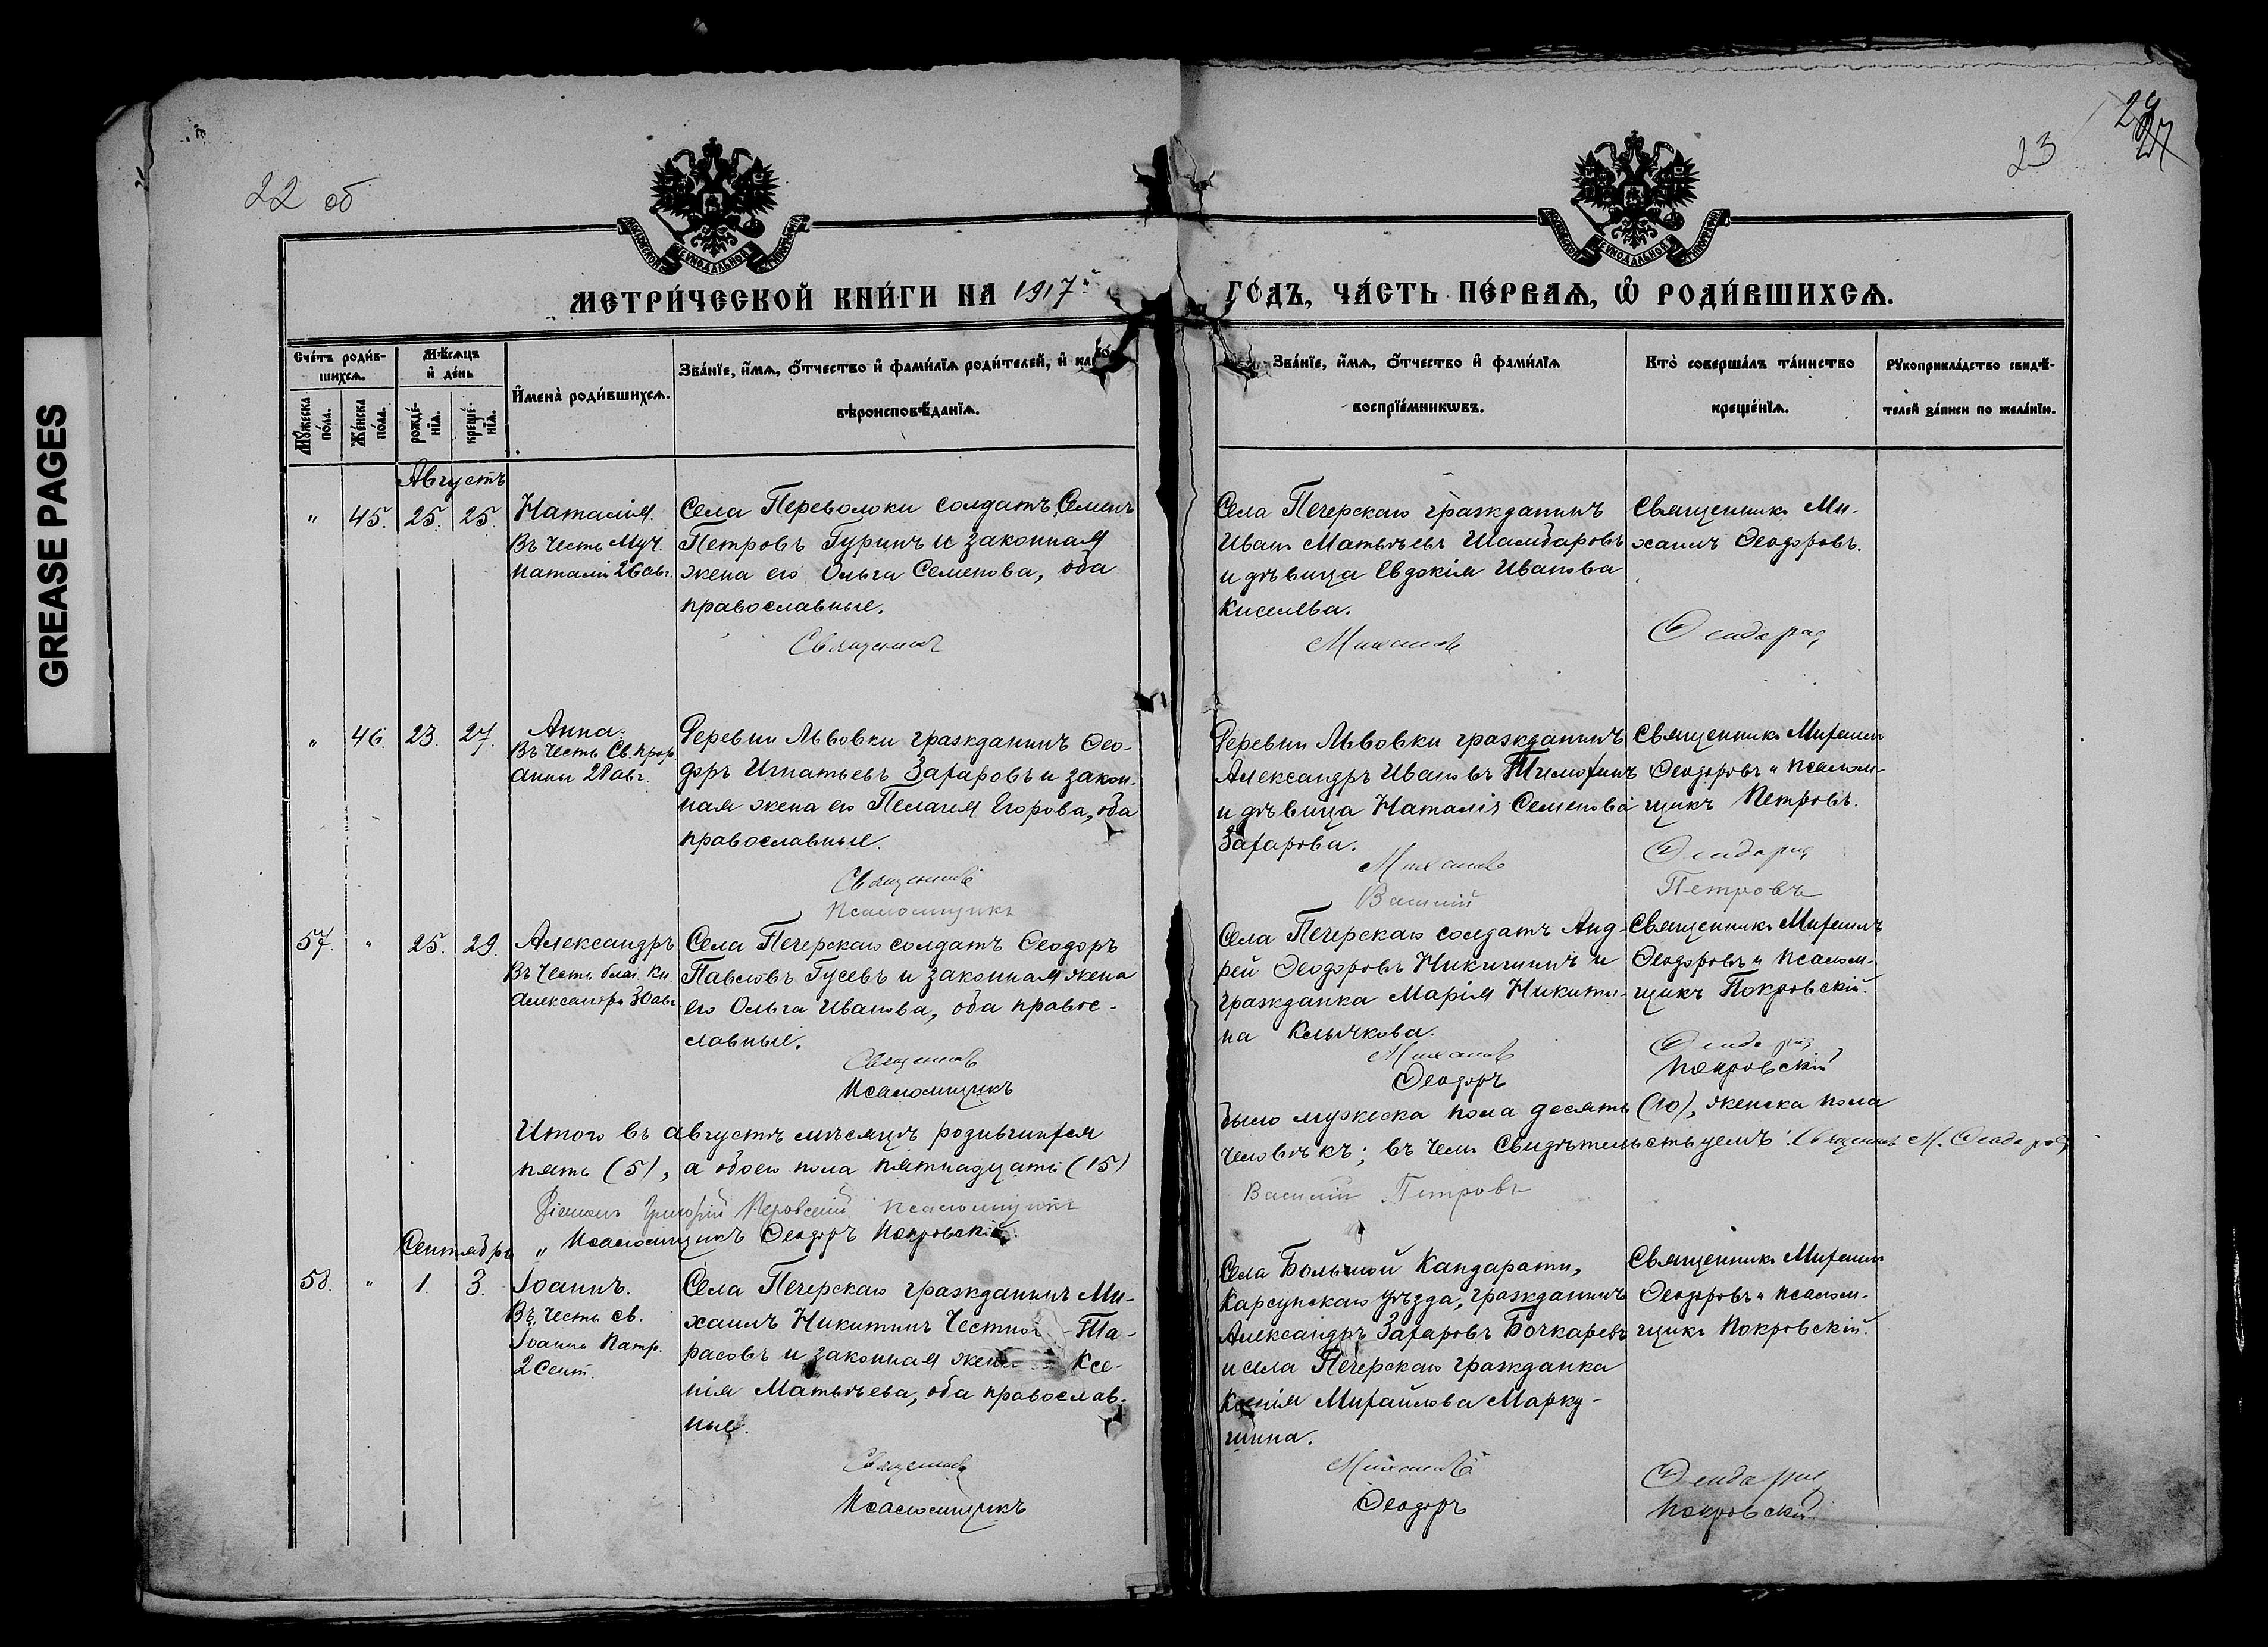 GREASE PAGES
22 об
23
МЕТРИ́ЧЕСКОЙ КНИ́ГИ НА 1917й
ГО́ДЪ, ЧА́СТЬ ПЕ́РВАѦ, Ѡ РОДИ́ВШИХСѦ.
Сче́тъ роди́в-
шихсѧ.
Мѣ́сѧцъ
и҆ де́нь
Мꙋ́жеска
по́ла.
Же́нска
по́ла.
рожде́-
нїѧ.
креще́-
нїѧ.
И҆мена̀ роди́вшихсѧ.
Зва́нїе, и҆́мѧ, ѻ҆́тчество и҆ фами́лїѧ роди́телей, и҆
вѣроисповѣ́данїѧ.
Зва́нїе, и҆́мѧ, ѻ҆́тчество и҆ фами́лїѧ
воспрїе́мникѡвъ.
Кто̀ соверша́лъ та́инство
креще́нїѧ.
Рꙋкоприкла́дство свидѣ́-
телей за́писи по жела́нїю.
Августъ
" 45. 25. 25. Наталія.
Въ честь Муч.
Наталіи 26 авг.
Села Переволоки солдатъ Семенъ
Петровъ Гуринъ и законная
жена его Ольга Семенова, оба
православные.
Священникъ
Села Печерскаго гражданинъ
Иванъ Матвѣевъ Шамбаровъ
и дѣвица Евдокія Иванова
Киселева.
Михаилъ
Священникъ Ми-
хаилъ Ѳеодоровъ.
Ѳеодоровъ
" 46. 23. 27. Анна.
Въ честь Св. прор.
Анны 28 авг.
Деревни Львовки гражданинъ Ѳео-
доръ Игнатьевъ Захаровъ и закон-
ная жена его Пелагія Егорова, оба
православные.
Священникъ
Псаломщикъ
Деревни Львовки гражданинъ
Александръ Ивановъ Тимохинъ
и дѣвица Наталія Семенова
Захарова.
Михаилъ
Василій
Священникъ Михаилъ
Ѳеодоровъ и псалом-
щикъ Петровъ.
Ѳеодоровъ
Петровъ
57. " 25. 29. Александръ
Въ честь благ. кн.
Александра 30 авг.
Села Печерскаго солдатъ Ѳеодоръ
Павловъ Гусевъ и законная жена
его Ольга Иванова, оба правос-
лавные.
Священникъ
Псаломщикъ
Села Печерскаго солдатъ Анд-
рей Ѳеодоровъ Никишинъ и
гражданка Марія Никити-
на Клычкова.
Михаилъ
Ѳеодоръ
Священникъ Михаилъ
Ѳеодоровъ и псалом-
щикъ Покровскій.
Ѳеодоровъ
Покровскій
Итого въ августѣ мѣсяцѣ родившихся
было мужеска пола десять (10), женска пола
пять (5), а обоего пола пятнадцать (15)
человѣкъ; въ чемъ свидѣтельствуемъ: Священникъ М. Ѳеодоровъ
Діаконъ Григорій псаломщикъ
Василій Петровъ
" Псаломщикъ Ѳеодоръ Покровскій.
Сентябрь
58. " 1. 3. Іоаннъ.
Въ честь св.
Іоанна Патр.
2 Сент.
Села Печерскаго гражданинъ Ми-
хаилъ Никитинъ Честно - Та-
расовъ и законная жена Ксе-
нія Матвѣева, оба православ-
ные.
Священникъ
Псаломщикъ
Села Большой Кандарати,
Карсунскаго уѣзда, гражданинъ
Александръ Захаровъ Бочкаревъ
и села Печерскаго гражданка
Ксенія Михайлова Марку-
шина.
Михаилъ
Ѳеодоръ
Священникъ Михаилъ
Ѳеодоровъ и псалом-
щикъ Покровскій.
Ѳеодоровъ
Покровскій